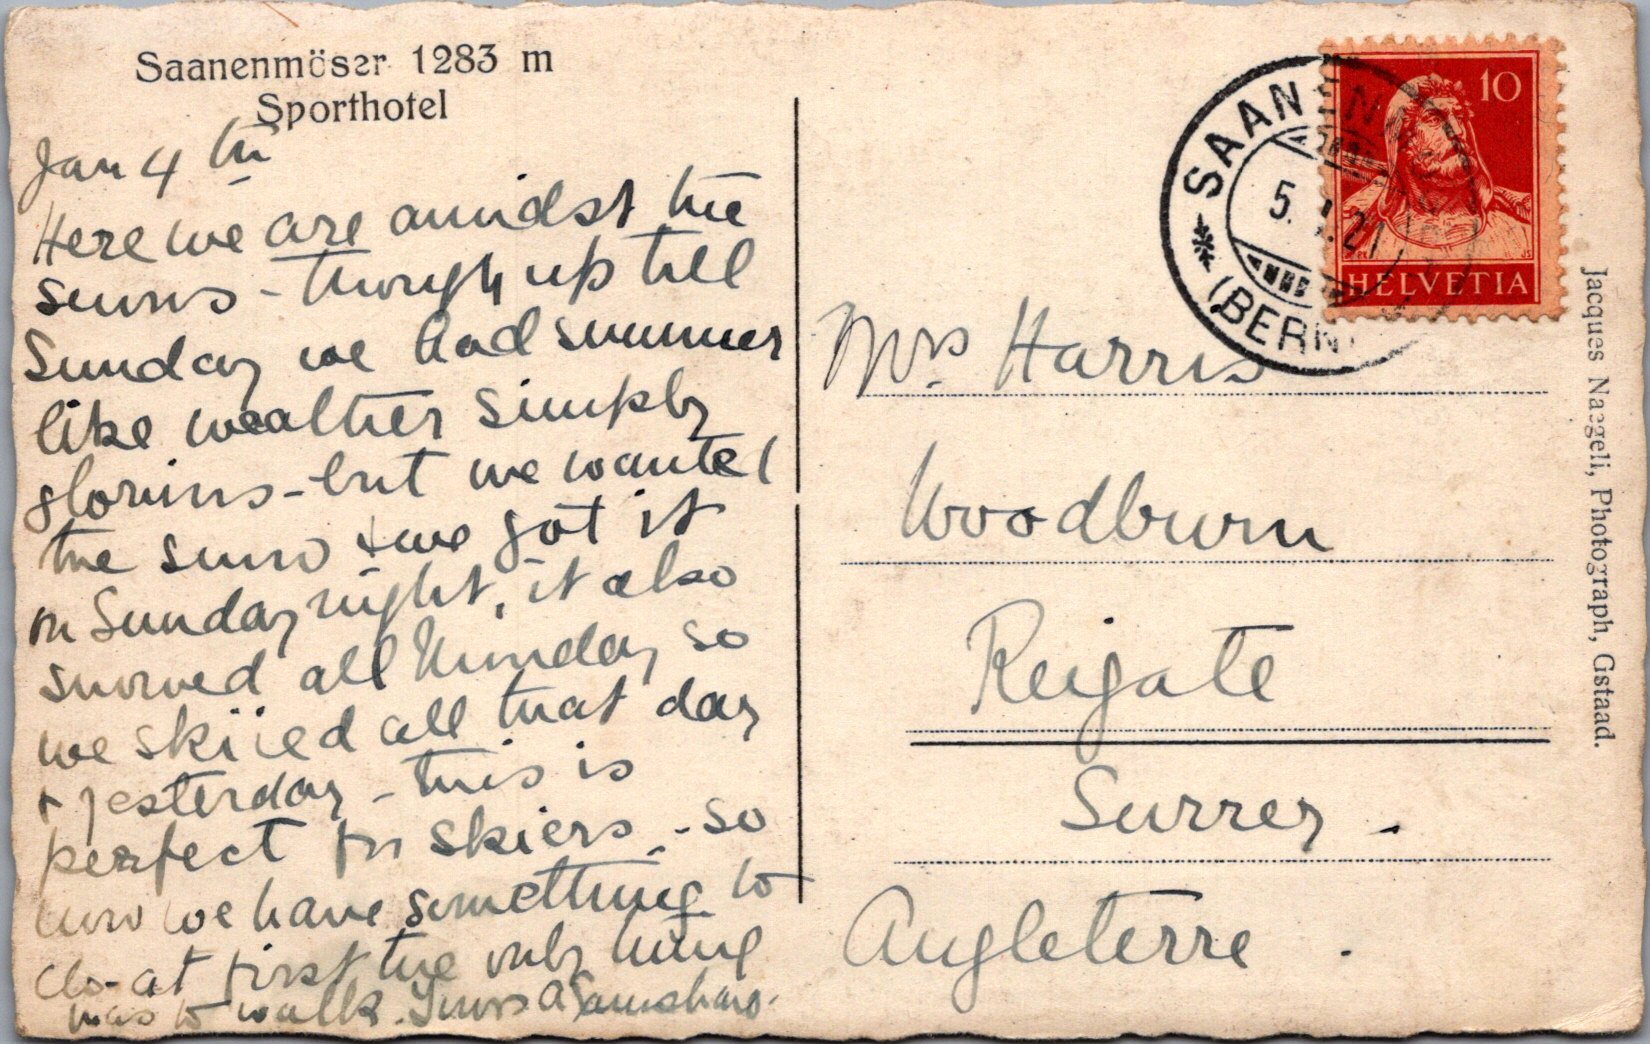 Saanenmöser 1283 m
Sporthotel
Jan 4th
Here we are amidst the
snows - though up till
Sunday we had summer
like weather simply
glorious - but we wanted
the snow + we got it
on Sunday night, it also
snowed all Monday so
we skiied all that day
+ yesterday - this is
perfect for skiers - so
now we have something to
do - at first the only thing
was to walk. Yours
Mrs Harris
Woodburn
Reigate
Surrey -
Angleterre .
SAANENMÖSER
5. I. 21
(BERN)
10
HELVETIA
Jacques Naegeli, Photograph, Gstaad.